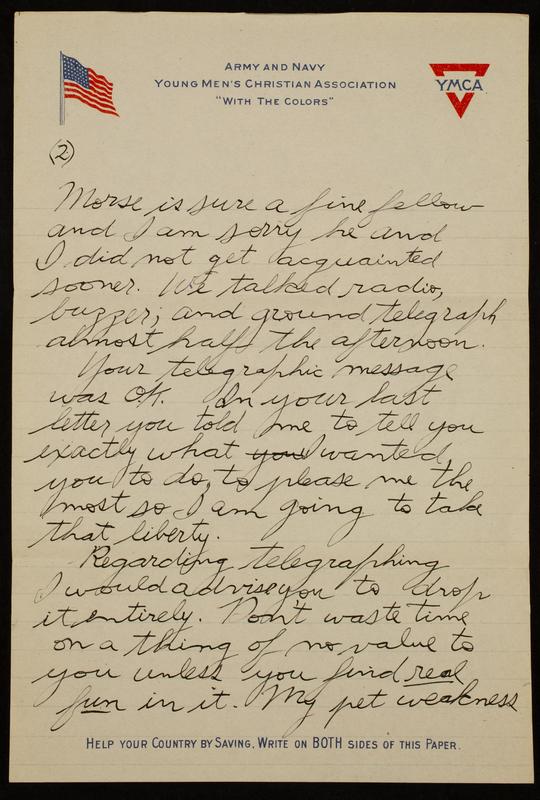 ARMY AND NAVY
YOUNG MEN'S CHRISTIAN ASSOCIATION
"WITH THE COLORS"
YMCA
(2)
Morse is sure a fine fellow
and I am sorry he and
I did not get acquainted
sooner. We talked radio,
buzzer; and ground telegraph
almost half the afternoon.
Your telegraphic message
was OK. In your last
letter you told me to tell you
exactly what you I wanted
you to do, to please me the
most so I am going to take
that liberty.
Regarding telegraphing
I would advise you to drop
it entirely. Don't waste time
on a thing of no value to
you unless you find real
fun in it. My pet weakness
HELP YOUR COUNTRY BY SAVING, WRITE ON BOTH SIDES OF THIS PAPER.